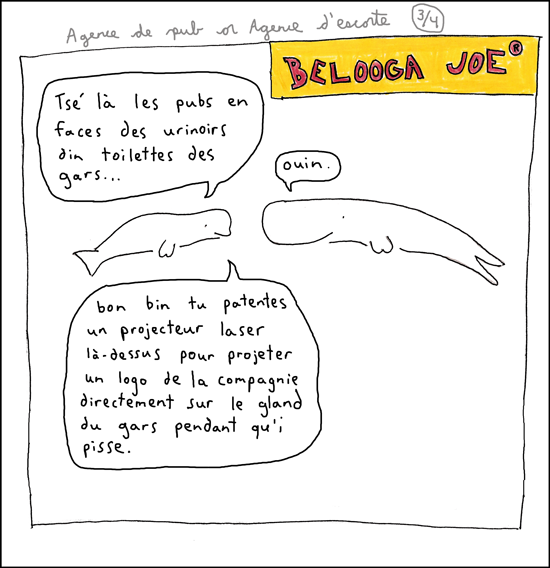 Agence de pub or Agence d'escorte 3/4
BELOOGA JOE ®
Tsé là les pubs en
faces des urinoirs
din toilettes des
gars...
ouin.
bon bin tu patentes
un projecteur laser
là-dessus pour projeter
un logo de la compagnie
directement sur le gland
du gars pendant qu'i
pisse.